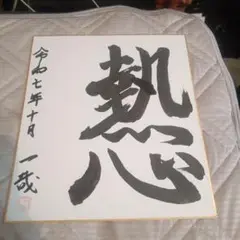 熱心
令和七年十月 一哉